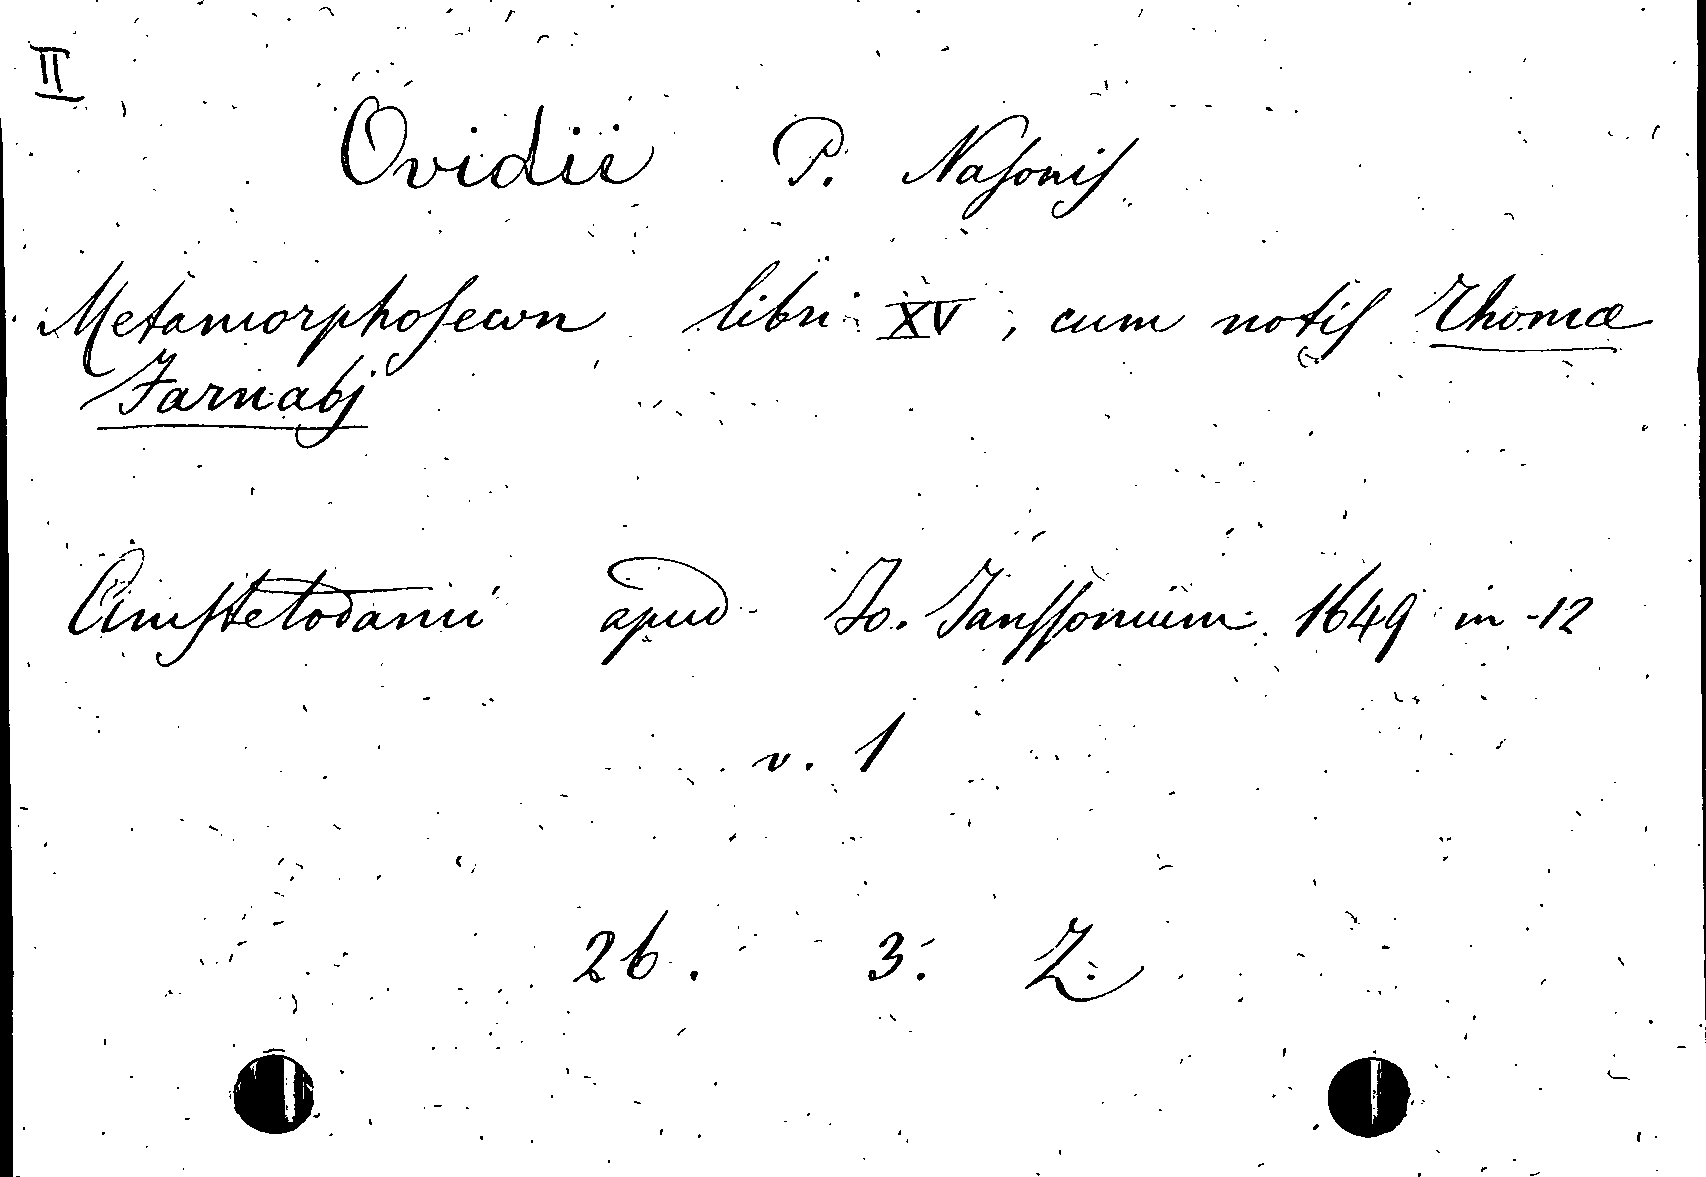 II
Ovidii P. Nasonis
Metamorphoseωn libri XV, cum notis Thomæ
Farnabj
Amstelodami apud Jo. Janssonium. 1649 in-12
v. 1
26. 3. Z.